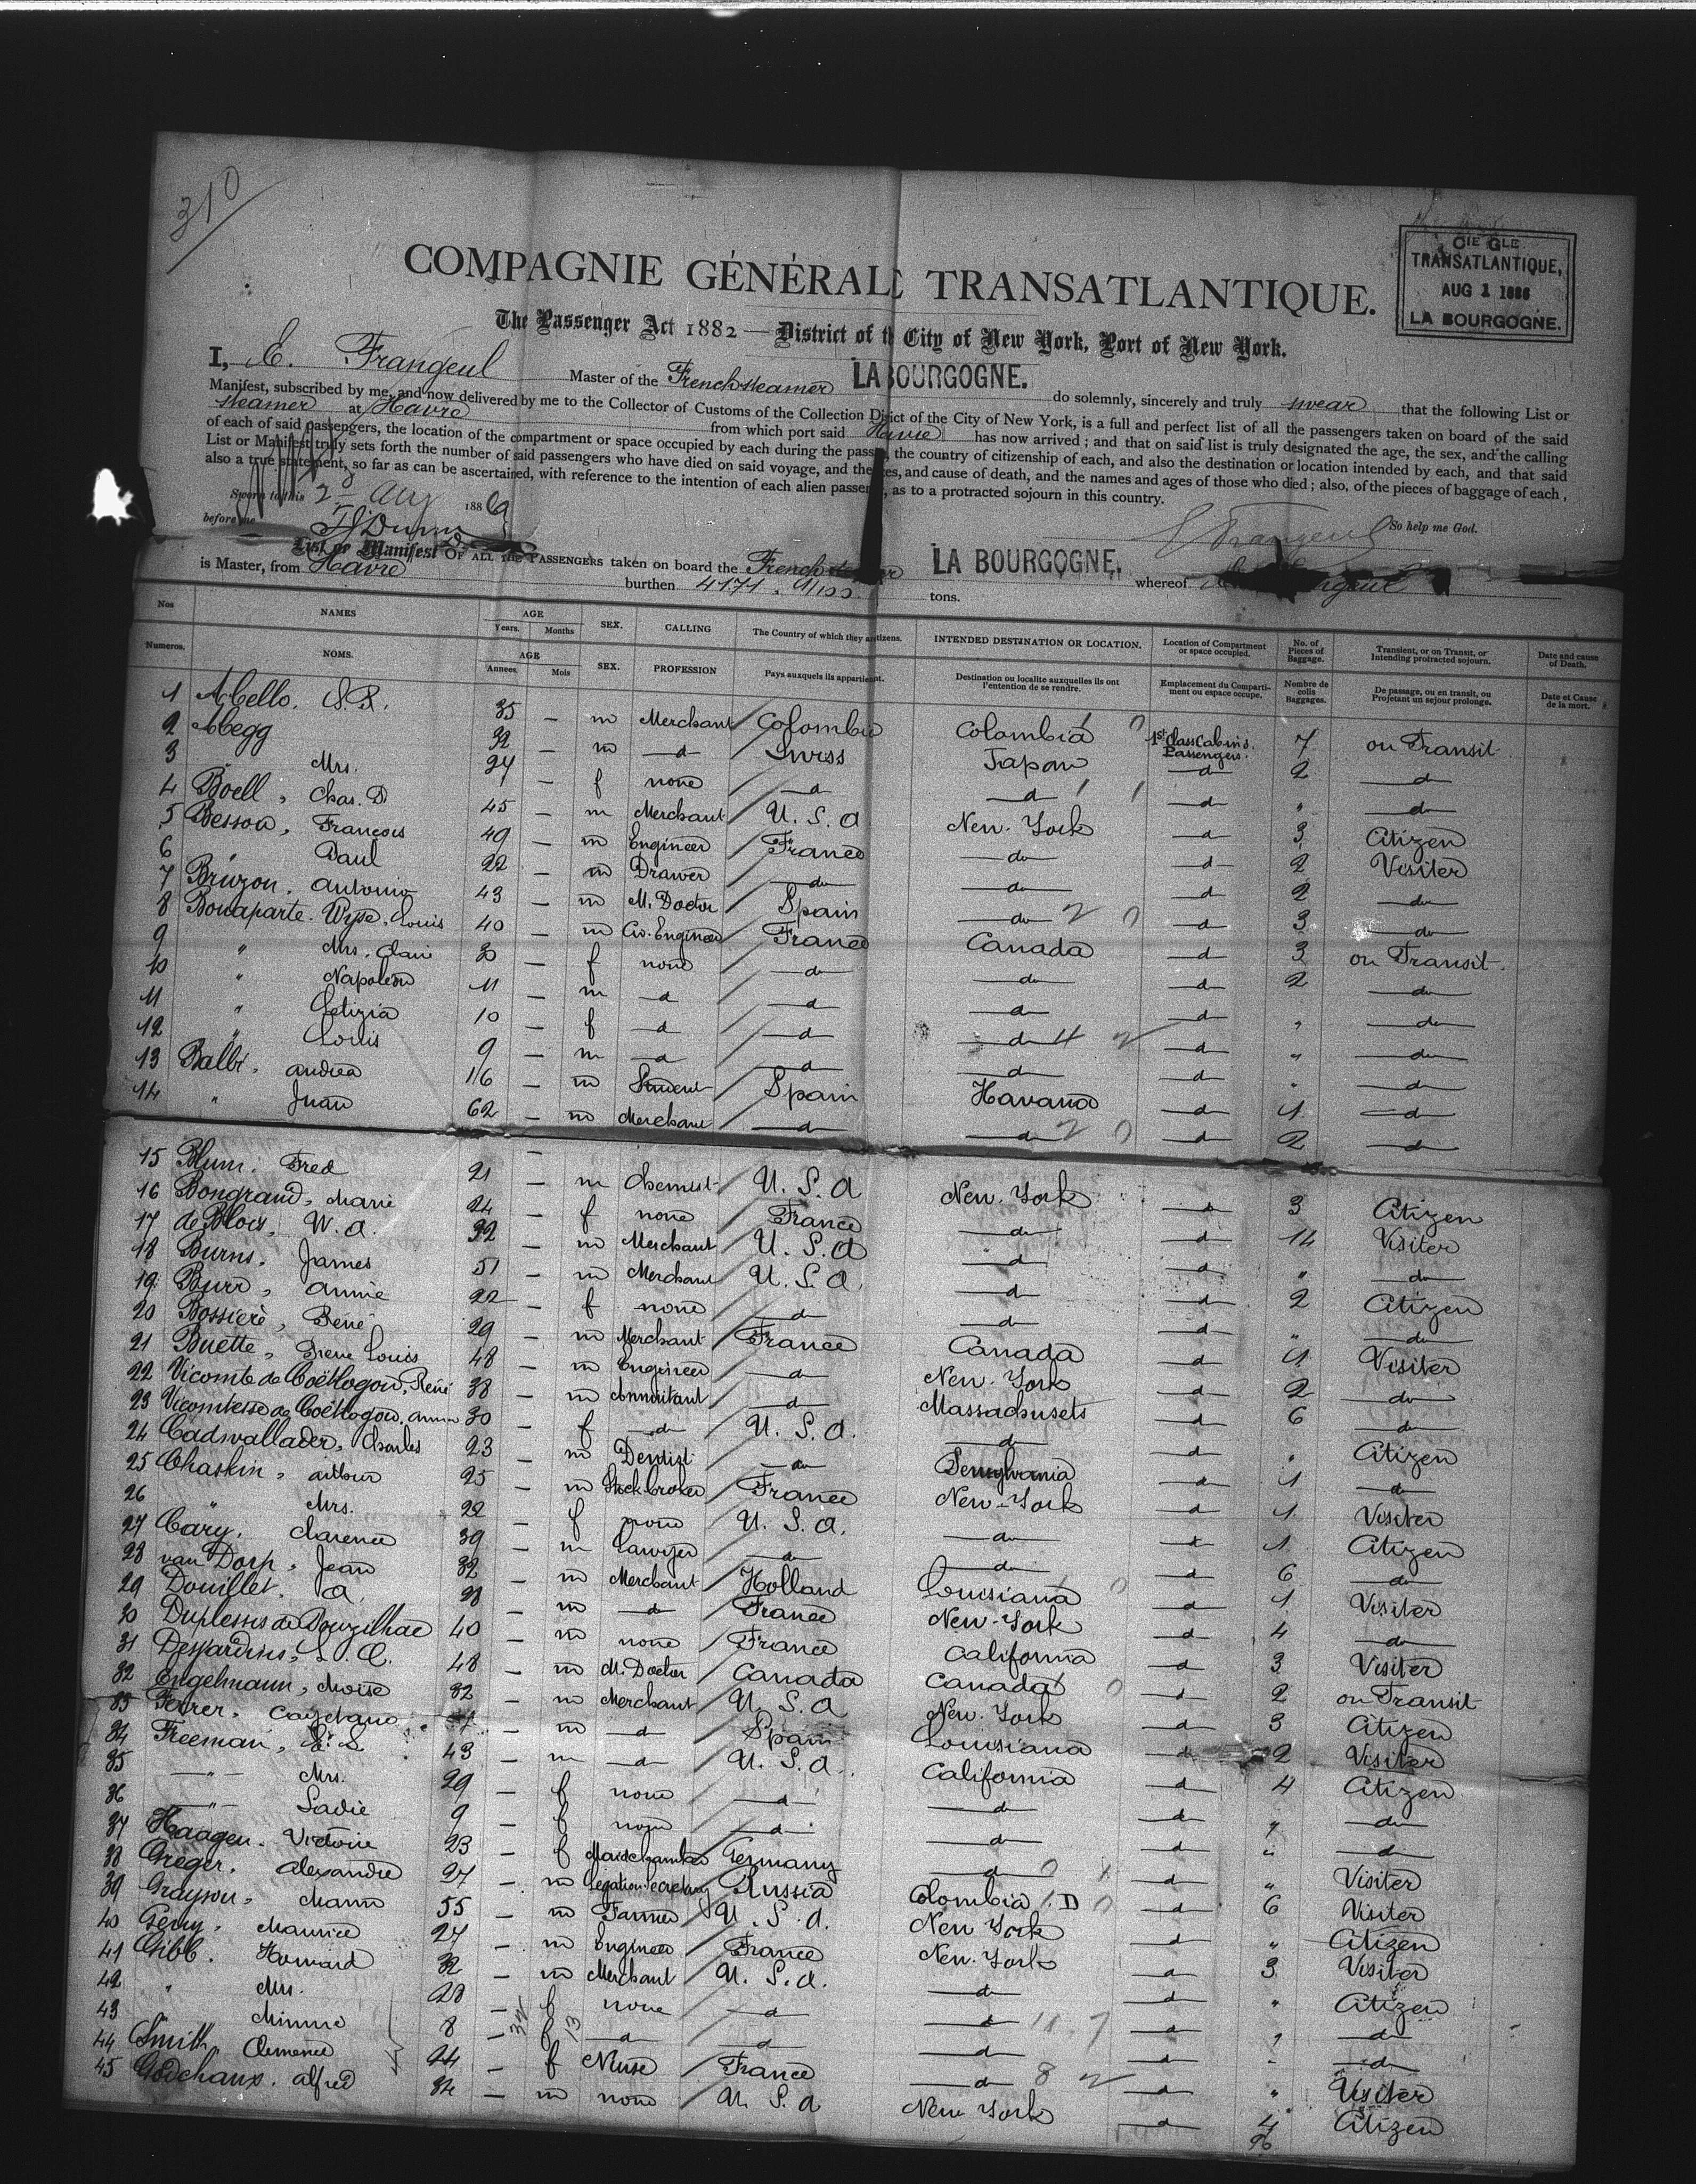 310
CIE GLE
TRANSATLANTIQUE,
AUG 1 1886
LA BOURGOGNE.
COMPAGNIE GÉNÉRALE TRANSATLANTIQUE.
The Passenger Act 1882 — District of the City of New York, Port of New York.
I, E. Frangeul Master of the French steamer LA BOURGOGNE. do solemnly, sincerely and truly swear that the following List or
Manifest, subscribed by me, and now delivered by me to the Collector of Customs of the Collection District of the City of New York, is a full and perfect list of all the passengers taken on board of the said
steamer at Havre from which port said Havre has now arrived; and that on said list is truly designated the age, the sex, and the calling
of each of said passengers, the location of the compartment or space occupied by each during the passage, the country of citizenship of each, and also the destination or location intended by each, and that said
List or Manifest truly sets forth the number of said passengers who have died on said voyage, and the dates, and cause of death, and the names and ages of those who died; also, of the pieces of baggage of each,
also a true statement, so far as can be ascertained, with reference to the intention of each alien passenger, as to a protracted sojourn in this country.
Sworn to this 2 Aug 1886
So help me God.
before me
E Frangeul
List or Manifest OF ALL THE PASSENGERS taken on board the French steamer LA BOURGOGNE. whereof
is Master, from Havre burthen 4171 tons.
Nos NAMES AGE Years. Months SEX. CALLING The Country of which they are citizens. INTENDED DESTINATION OR LOCATION. Location of Compartment or space occupied. No. of Pieces of Baggage. Transient, or on Transit, or Intending protracted sojourn. Date and cause of Death.
Numeros. NOMS. AGE Annees. Mois SEX. PROFESSION Pays auxquels ils appartient. Destination ou localite auxquelles ils ont l'entention de se rendre. Emplacement du Compartiment ou espace occupe. Nombre de colis Baggages. De passage, ou en transit, ou Projetant un sejour prolonge. Date et Cause de la mort.
1 Abello. S.R. 35 — m Merchant Colombia Colombia 1st Class Cabins Passengers. 7 on Transit
2 Abegg 32 — m —d— Swiss Japan —d— 2 —d—
3 Mrs. 27 — f none —d— —d— —d— " —d—
4 Boell, Chas. D 45 — m Merchant U.S.A New-York —d— 3 Citizen
5 Besson, François 49 — m Engineer France —do— —d— 2 Visiter
6 " Paul 22 — m Drawer —do— —do— —d— 2 —do—
7 Bruzon. Antonio 43 — m M. Doctor Spain —do— —d— 3 —do—
8 Bonaparte-Wyse, Louis 40 — m Civ. Engineer France Canada —d— 3 on Transit.
9 " Mrs. Clair 30 — f none —do— —do— —d— 2 —do—
10 " Napoléon 11 — m —d— —d— —d— —d— " —do—
11 " Letizia 10 — f —d— —d— —d— —d— " —do—
12 " Louis 9 — m —d— —d— —d— —d— " —d—
13 Balbi, Andrea 16 — m Student Spain Havana —d— 1 —d—
14 " Juan 62 — m Merchant —d— —d— —d— 2 —d—
15 Blum. Fred 21 — m Chemist U.S.A New-York —d— 3 Citizen
16 Bongrand, Marie 24 — f none France —do— —d— 14 Visiter
17 de Blois, W.A. 32 — m Merchant U.S.A —d— —d— " —do—
18 Burns. James 51 — m Merchant U.S.A. —d— —d— 2 Citizen
19 Burr, Annie 22 — f none —do— —d— —d— " —do—
20 Bossière, René 29 — m Merchant France Canada —d— 1 Visiter
21 Buette, Pierre Louis 48 — m Engineer —d— New-York —d— 2 —do—
22 Vicomte de Coëtlogon, René 38 — m —d— Massachusets —d— 6 —do—
23 Vicomtesse de Coëtlogon. 30 — f —d— U.S.A. —d— —d— " Citizen
24 Cadwallader, Charles 23 — m Dentist —do— Pensylvania —d— 1 —d—
25 Chaskin, Arthur 25 — m Stock-broker France New-York —d— 1 Visiter
26 " Mrs. 22 — f none U.S.A. —do— —d— 1 Citizen
27 Cary. Clarence 39 — m Lawyer —do— —do— —d— 6 —do—
28 van Dorp, Jean 32 — m Merchant Holland Louisiana —d— 1 Visiter
29 Douillet. A. 28 — m —d— France New-York —d— 4 —do—
30 Duplessis de Pouzilhac 40 — m none France California —d— 3 Visiter
31 Desjardins, L.E. 48 — m M. Doctor Canada Canada —d— 2 on Transit
32 Engelmann, Moise 32 — m Merchant U.S.A New-York —d— 3 Citizen
33 Ferrer, Cayetano — m —d— Spain Louisiana —d— 2 Visiter
34 Freeman, E.S. 43 — m —d— U.S.A. California —d— 4 Citizen
35 —"— Mrs. 29 — f none —d— —d— —d— " —do—
36 —"— Sadie 9 — f none —d— —d— —d— " —d—
37 Haagen. Victorie 23 — f Maidchamber Germany —d— —d— " Visiter
38 Greger. Alexandre 27 — m Legation Secretary Russia Colombia. D —d— 6 Visiter
39 Grayson, Mann 55 — m Farmer U.S.A. New York —d— " Citizen
40 Geny, Maurice 27 — m Engineer France New-York —d— 3 Visiter
41 Gibb. Howard 32 — m Merchant U.S.A. —d— —d— " Citizen
42 " Mrs. 28 — f none —d— —d— —d— —d—
43 " Minnie 8 — f —d— —d— —d— —d— " —d—
44 Smith, Clemence 24 — f Nurse France —d— —d— " Visiter
45 Godchaux. Alfred 34 — m none U.S.A New York —d— 4 Citizen
96